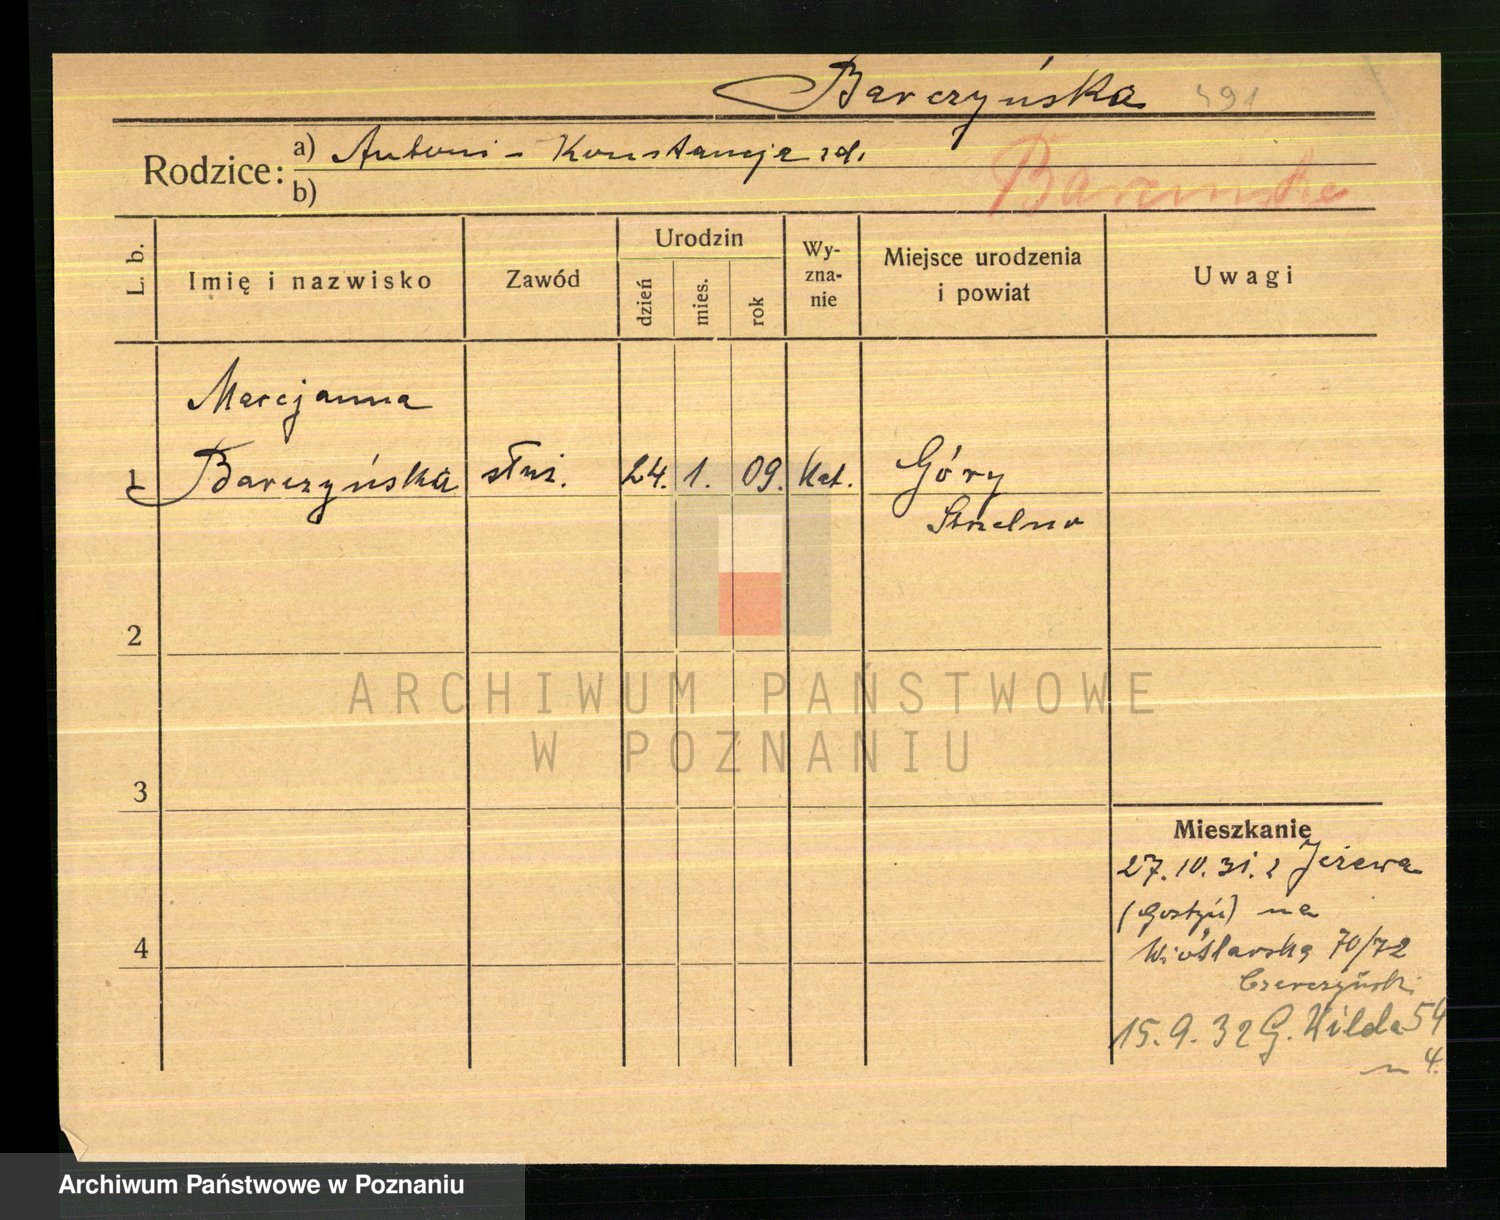 Barczyńska 491
Rodzice: a) Antoni - Konstancja zd.
b)
Barcińska
L. b. Imię i nazwisko Zawód Urodzin dzień mies. rok Wy-zna-nie Miejsce urodzenia i powiat Uwagi
Marcjanna
1 Barczyńska służ. 24. 1. 09. Kat. Góry
Strzelno
2
ARCHIWUM PAŃSTWOWE
W POZNANIU
3
Mieszkanie
27.10.31. z Jeżewa
(Gostyń) na
4
Wioślarską 70/72
15.9.32 G. Wilda 54
m 4.
Archiwum Państwowe w Poznaniu